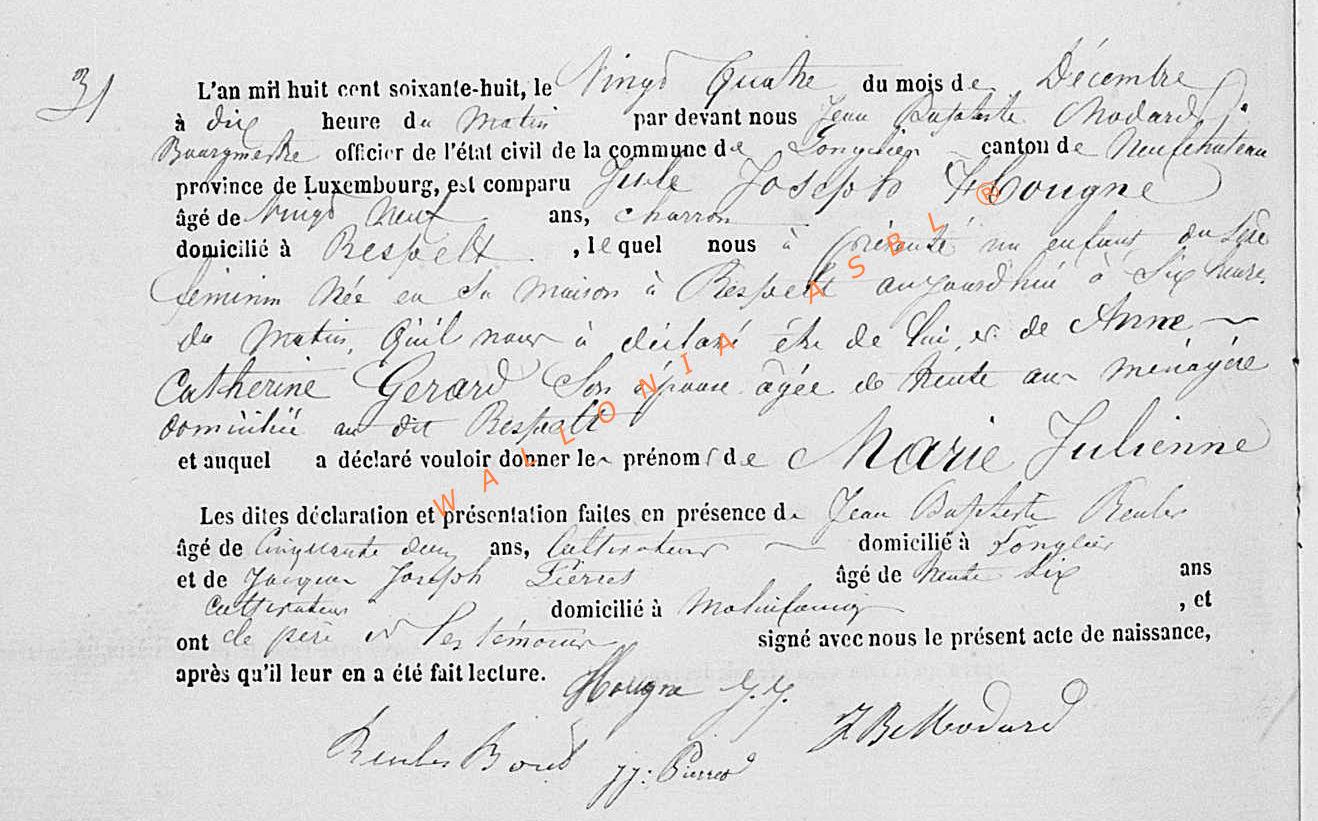 31
L'an mil huit cent soixante-huit, le Vingt Quatre du mois de Décembre
à dix heure du Matin par devant nous Jean Baptiste Modard
Bourgmestre officier de l'état civil de la commune de Longlier canton de Neufchateau
province de Luxembourg, est comparu Jule Joseph Hougne
âgé de Vingt Neuf ans, charron
domicilié à Respelt, lequel nous à présenté un enfant du Sexe
féminin Née en Sa maison à Respelt aujourd'hui à Six heure
du Matin, Qu'il nous à déclaré être de lui, et de Anne
Catherine Gerard Son épouse âgée de trente ans ménagère
domiciliée au dit Respelt
et auquel a déclaré vouloir donner les prénoms de Marie Julienne
Les dites déclaration et présentation faites en présence de Jean Baptiste Reuler
âgé de Cinquante deux ans, Cultivateur domicilié à Longlier
et de Jacques Joseph Pierres âgé de trente Six ans
Cultivateur domicilié à Molinfaing, et
ont Le père et Les témoins signé avec nous le présent acte de naissance,
après qu'il leur en a été fait lecture.
Hougne J. J.
J B Modard
Reuler
J J: Pierres
WALLONIA ASBL ®